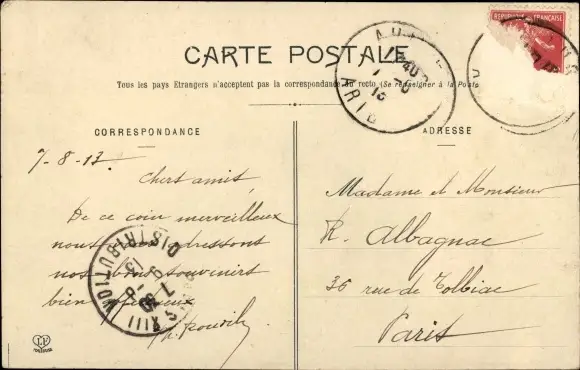 RÉPUBLIQUE FRANÇAISE
CARTE POSTALE
Tous les pays Etrangers n'acceptent pas la correspondance au recto (Se renseigner à la Poste)
CORRESPONDANCE
7-8-13.
Chers amis,
De ce coin merveilleux
nous vous adressons
nos bons souvenirs
bien
DISTRIBUTION
PARIS XIII
ADRESSE
Madame et Monsieur
R. Albagnac
36 rue de Tolbiac
Paris
LF